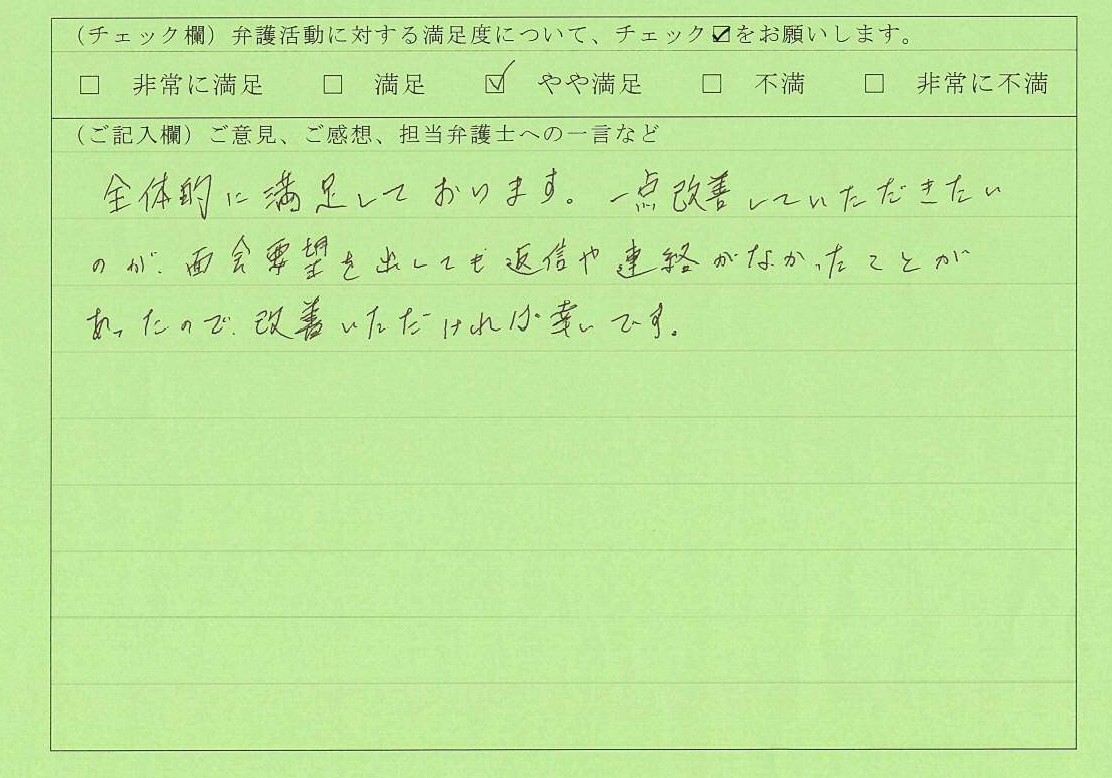 (チェック欄)弁護活動に対する満足度について、チェック☑をお願いします。
□ 非常に満足 □ 満足 ☑ やや満足 □ 不満 □ 非常に不満
(ご記入欄)ご意見、ご感想、担当弁護士への一言など
全体的に満足しております。一点改善していただきたい
のが、面会要望を出しても返信や連絡がなかったことが
あったので、改善いただければ幸いです。